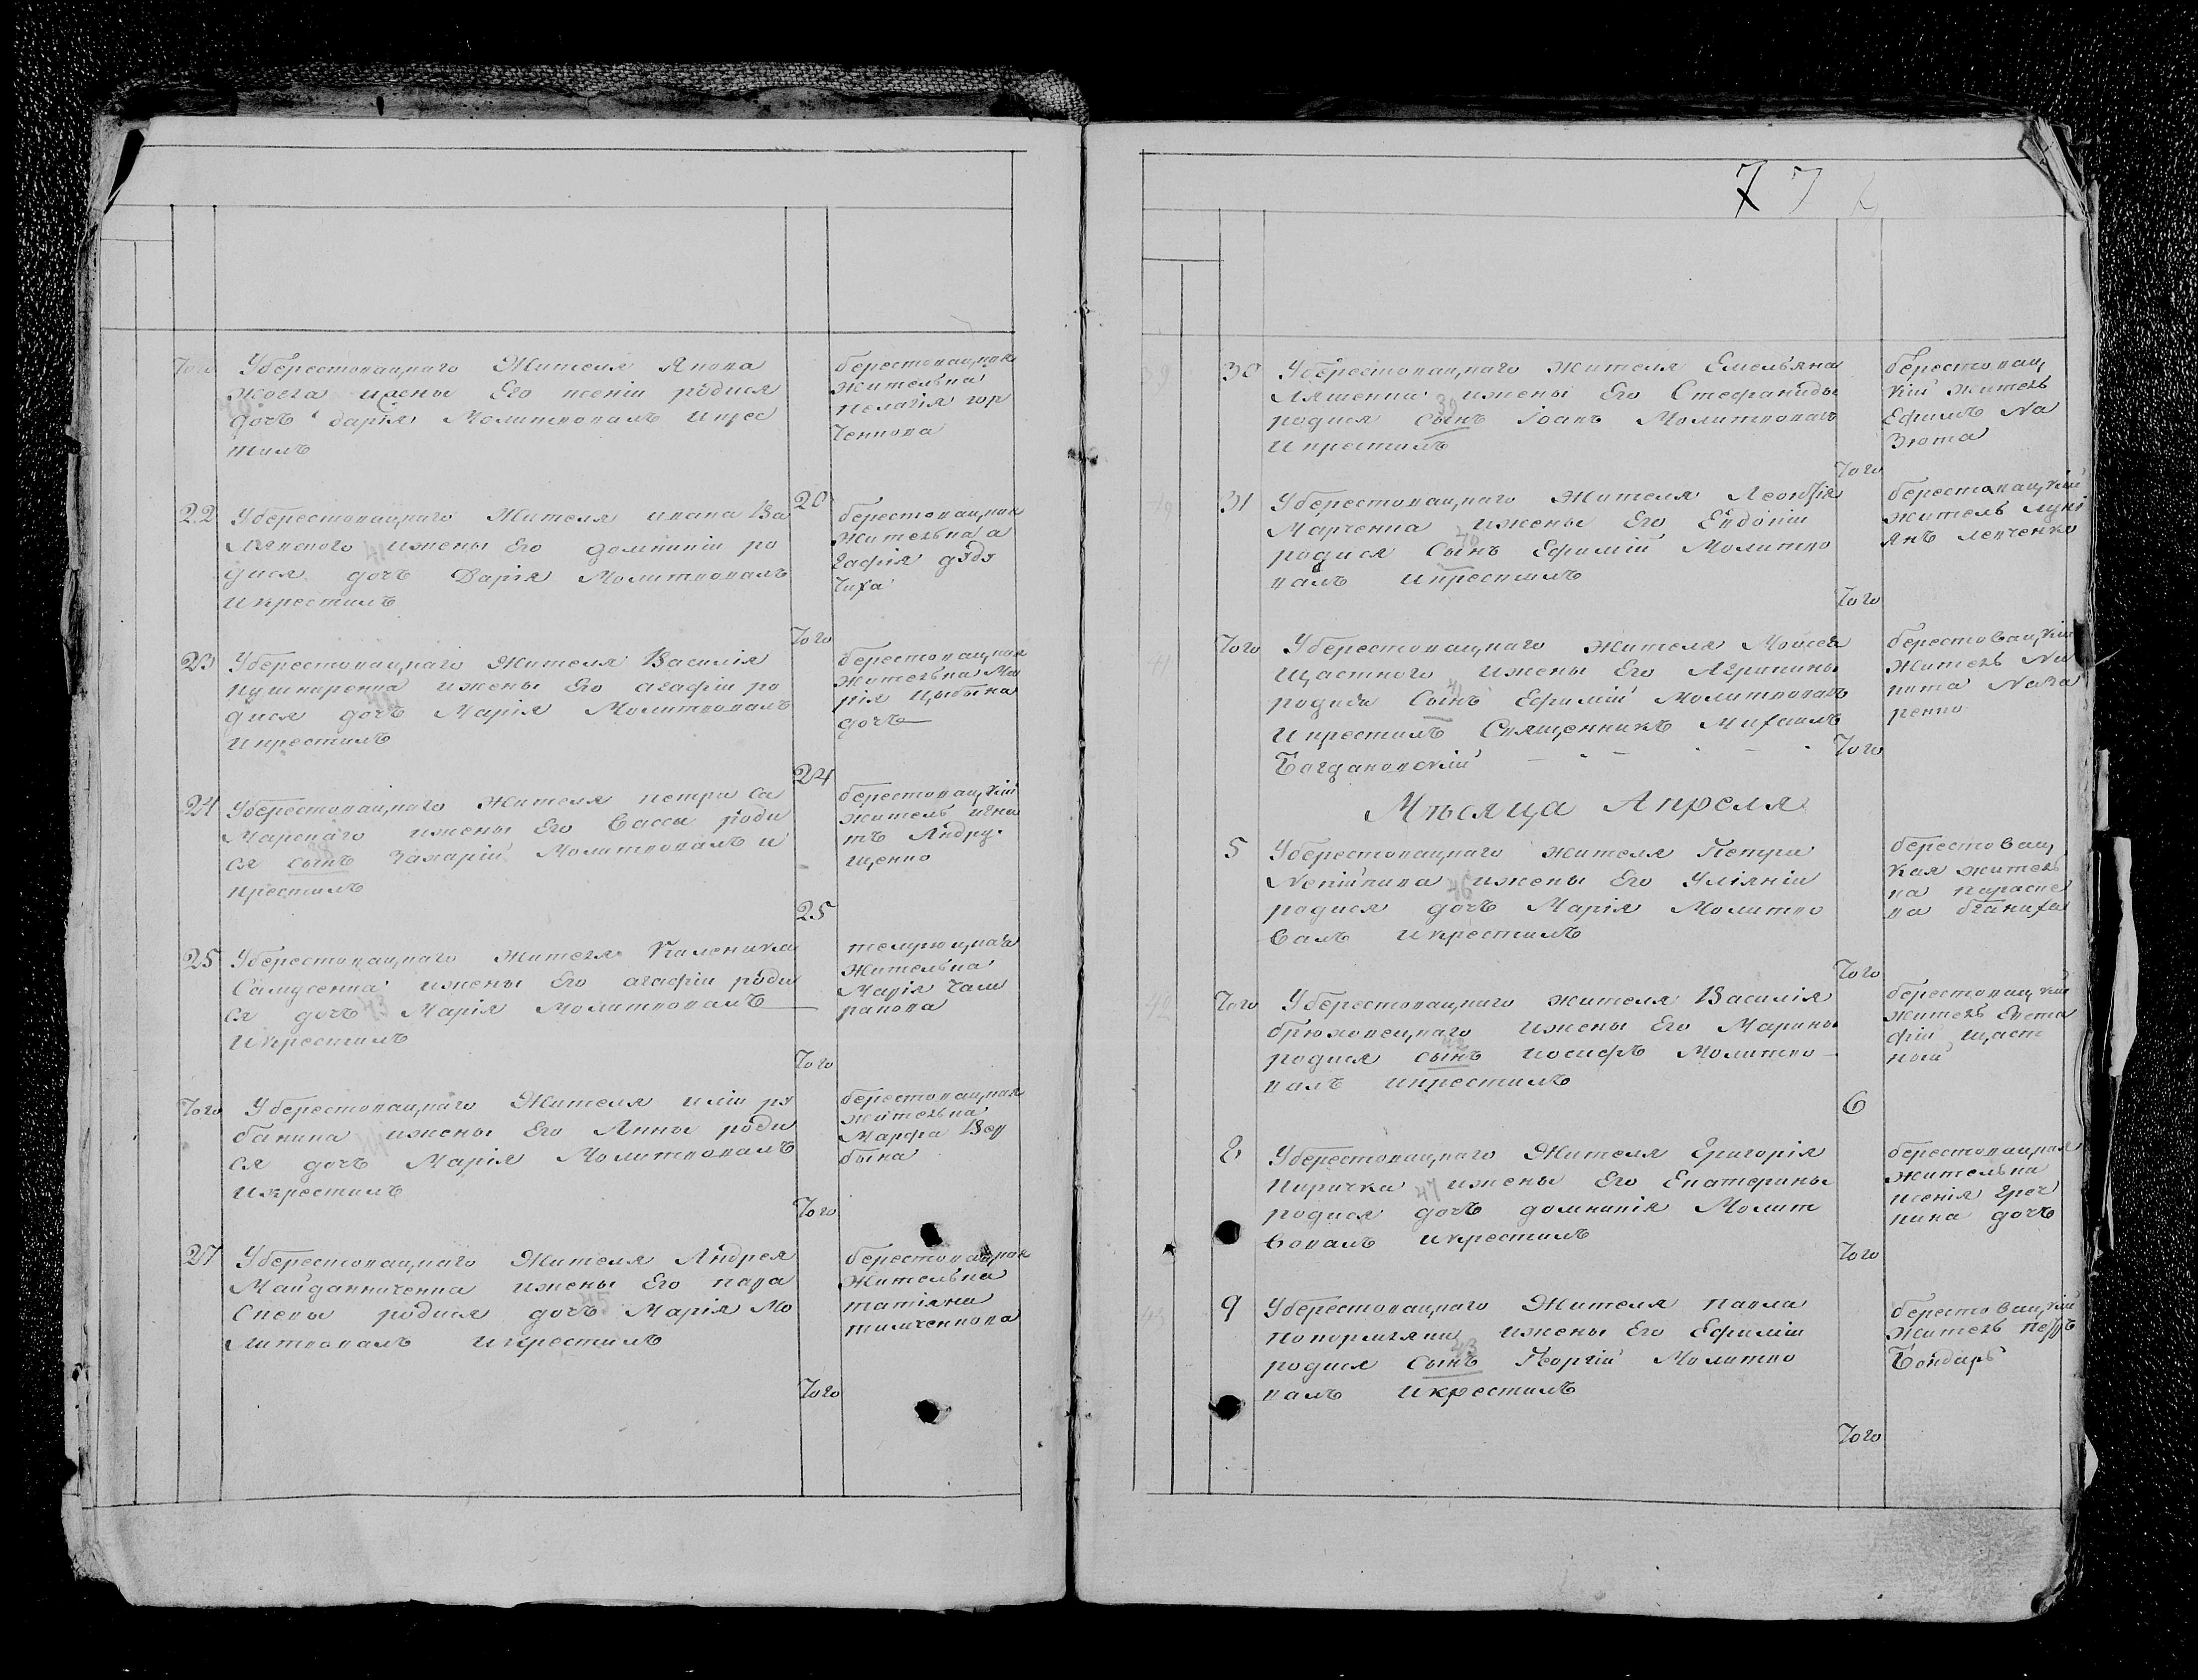 Того
Уберестовацкаго Жителя Якова
ижены Его ксеніи родися
дочь дарія Молитвовалъ икрес
тилъ
берестовацкая
жителька
пелагія гор
ченкова
22
Уберестовацкаго Жителя ивана Ва
ижены Его домникіи ро
дися дочь Дарія Молитвовалъ
икрестилъ
20
берестовацкая
жителька а
гафія дядя
чиха
Того
23
Уберестовацкаго Жителя Василія
пушкаренка ижены Его агафіи ро
дися дочь Марія Молитвовалъ
икрестилъ
берестовацкая
жителька Ма
рія Цыбына
дочь
24
24
Уберестовацкаго Жителя петра Са
марскаго ижены Его Вассы роди
ся сынъ Захарій Молитвовалъ и
крестилъ
берестовацкій
житель игна
тъ Андру
щенко
25
25
Уберестовацкаго жителя Каленика
Самусенка ижены Его агафіи роди
ся дочь Марія молитвовалъ
икрестилъ
жителька
Марія
Того
Того
Уберестовацкаго Жителя иліи ря
бакина ижены Его Анны роди
ся дочь Марія Молитвовалъ
икрестилъ
берестовацкая
жителька
Марфа Вер
быка
Того
27
Уберестовацкаго Жителя Андрея
Майданниченка ижены Его пара
скевы родися дочь Марія Мо
литвовалъ икрестилъ
берестовацкая
Жителька
татіяна
тимченкова
Того
772
30
Уберестовацкаго жителя Емельяна
Ляшенка ижены Его Стефаниды
родися сынъ Іоанъ Молитвовалъ
икрестилъ
39
берестовац
кій житель
Ефимъ Ко
зюта
Того
31
Уберестовацкаго Жителя Леонтія
Марченка ижены Его Евдокіи
родися Сынъ Ефимій Молитво
валъ икрестилъ
40
берестовацкій
житель лукі
янъ левченко
Того
Того
Уберестовацкаго жителя Моисея
Щастного ижены Его Агрипины
родися Сынъ Ефимій молитвовалъ
икрестилъ Священникъ Михаилъ
Богдановскій
41
берестовацкій
житель Ни
кита
Того
Мѣсяца Апреля
5
Уберестовацкаго жителя Петра
ижены Его Уліяніи
родися дочь Марія Молитво
валъ икрестилъ
46
берестовац
кая житель
ка параске
ва
Того
Того
Уберестовацкаго жителя Василія
брюховецкаго ижены Его Марины
родися сынъ иосифъ Молитво
валъ икрестилъ
42
берестовацкій
житель Евста
фій щаст
ный
6
8
Уберестовацкаго Жителя Григорія
Киричка ижены Его Екатерины
родися дочь домникія Молит
вовалъ икрестилъ
47
берестовацкая
жителька
ксенія греч
кина дочь
Того
9
Уберестовацкаго Жителя павла
ижены Его Ефиміи
родися сынъ Георгій Молитво
валъ икрестилъ
43
берестовацкій
житель петръ
Бондарь
Того